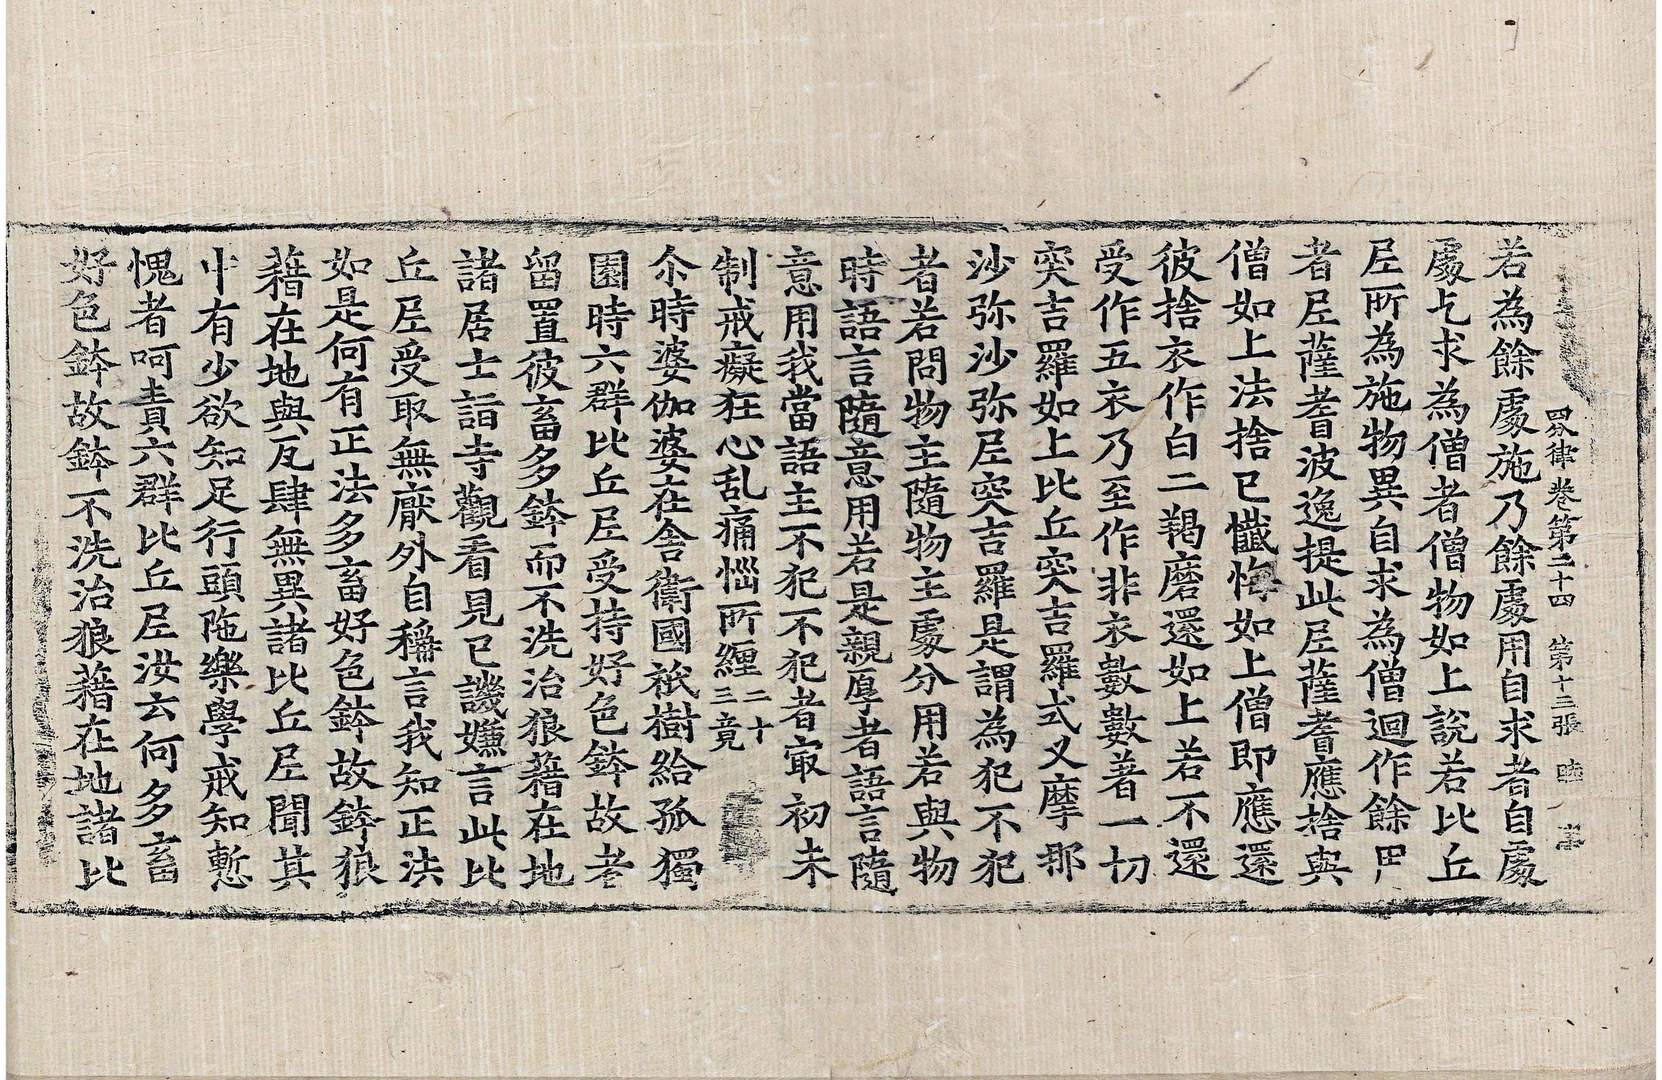 四分律卷第二十四 第十三張 睦
若為餘處施乃餘處用自求者自處
處乞求為僧者僧物如上說若比丘
尼所為施物異自求為僧迴作餘用
者尼薩耆波逸提此尼薩耆應捨與
僧如上法捨已懺悔如上僧即應還
彼捨衣作白二羯磨還如上若不還
受作五衣乃至作非衣數數著一切
突吉羅如上比丘突吉羅式叉摩那
沙弥沙弥尼突吉羅是謂為犯不犯
者若問物主隨物主處分用若與物
時語言隨意用若是親厚者語言隨
意用我當語主不犯不犯者㝡初未
制戒癡狂心乱痛惱所纏二十三竟
尒時婆伽婆在舍衛國祇樹給孤獨
園時六群比丘尼受持好色鉢故者
留置彼畜多鉢而不洗治狼藉在地
諸居士詣寺觀看見已譏嫌言此比
丘尼受取無厭外自稱言我知正法
如是何有正法多畜好色鉢故鉢狼
藉在地與瓦肆無異諸比丘尼聞其
中有少欲知足行頭陁樂學戒知慙
愧者呵責六群比丘尼汝云何多畜
好色鉢故鉢不洗治狼藉在地諸比